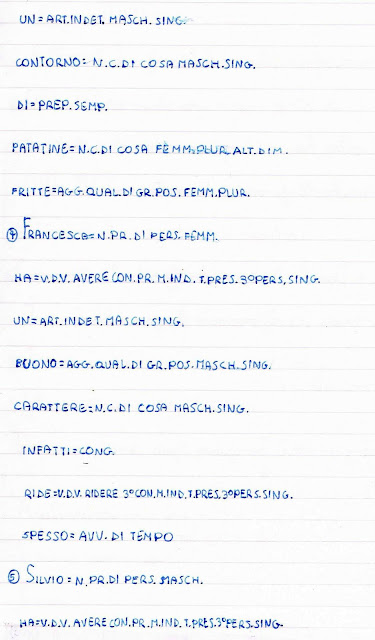 UN=ART.INDET.MASCH.SING.
CONTORNO=N.C.DI COSA MASCH.SING.
DI=PREP.SEMP.
PATATINE=N.C.DI COSA FEMM.PLUR.ALT.DIM.
FRITTE=AGG.QUAL.DI GR.POS.FEMM.PLUR.
④ FRANCESCA=N.PR.DI PERS.FEMM.
HA=V.D.V.AVERE CON.PR.M.IND.T.PRES.3°PERS.SING.
UN=ART.INDET.MASCH.SING.
BUONO=AGG.QUAL.DI GR.POS.MASCH.SING.
CARATTERE=N.C.DI COSA MASCH.SING.
INFATTI=CONG.
RIDE=V.D.V.RIDERE 3°CON.M.IND.T.PRES.3°PERS.SING.
SPESSO=AVV.DI TEMPO
⑤ SILVIO=N.PR.DI PERS.MASCH.
HA=V.D.V.AVERE CON.PR.M.IND.T.PRES.3°PERS.SING.